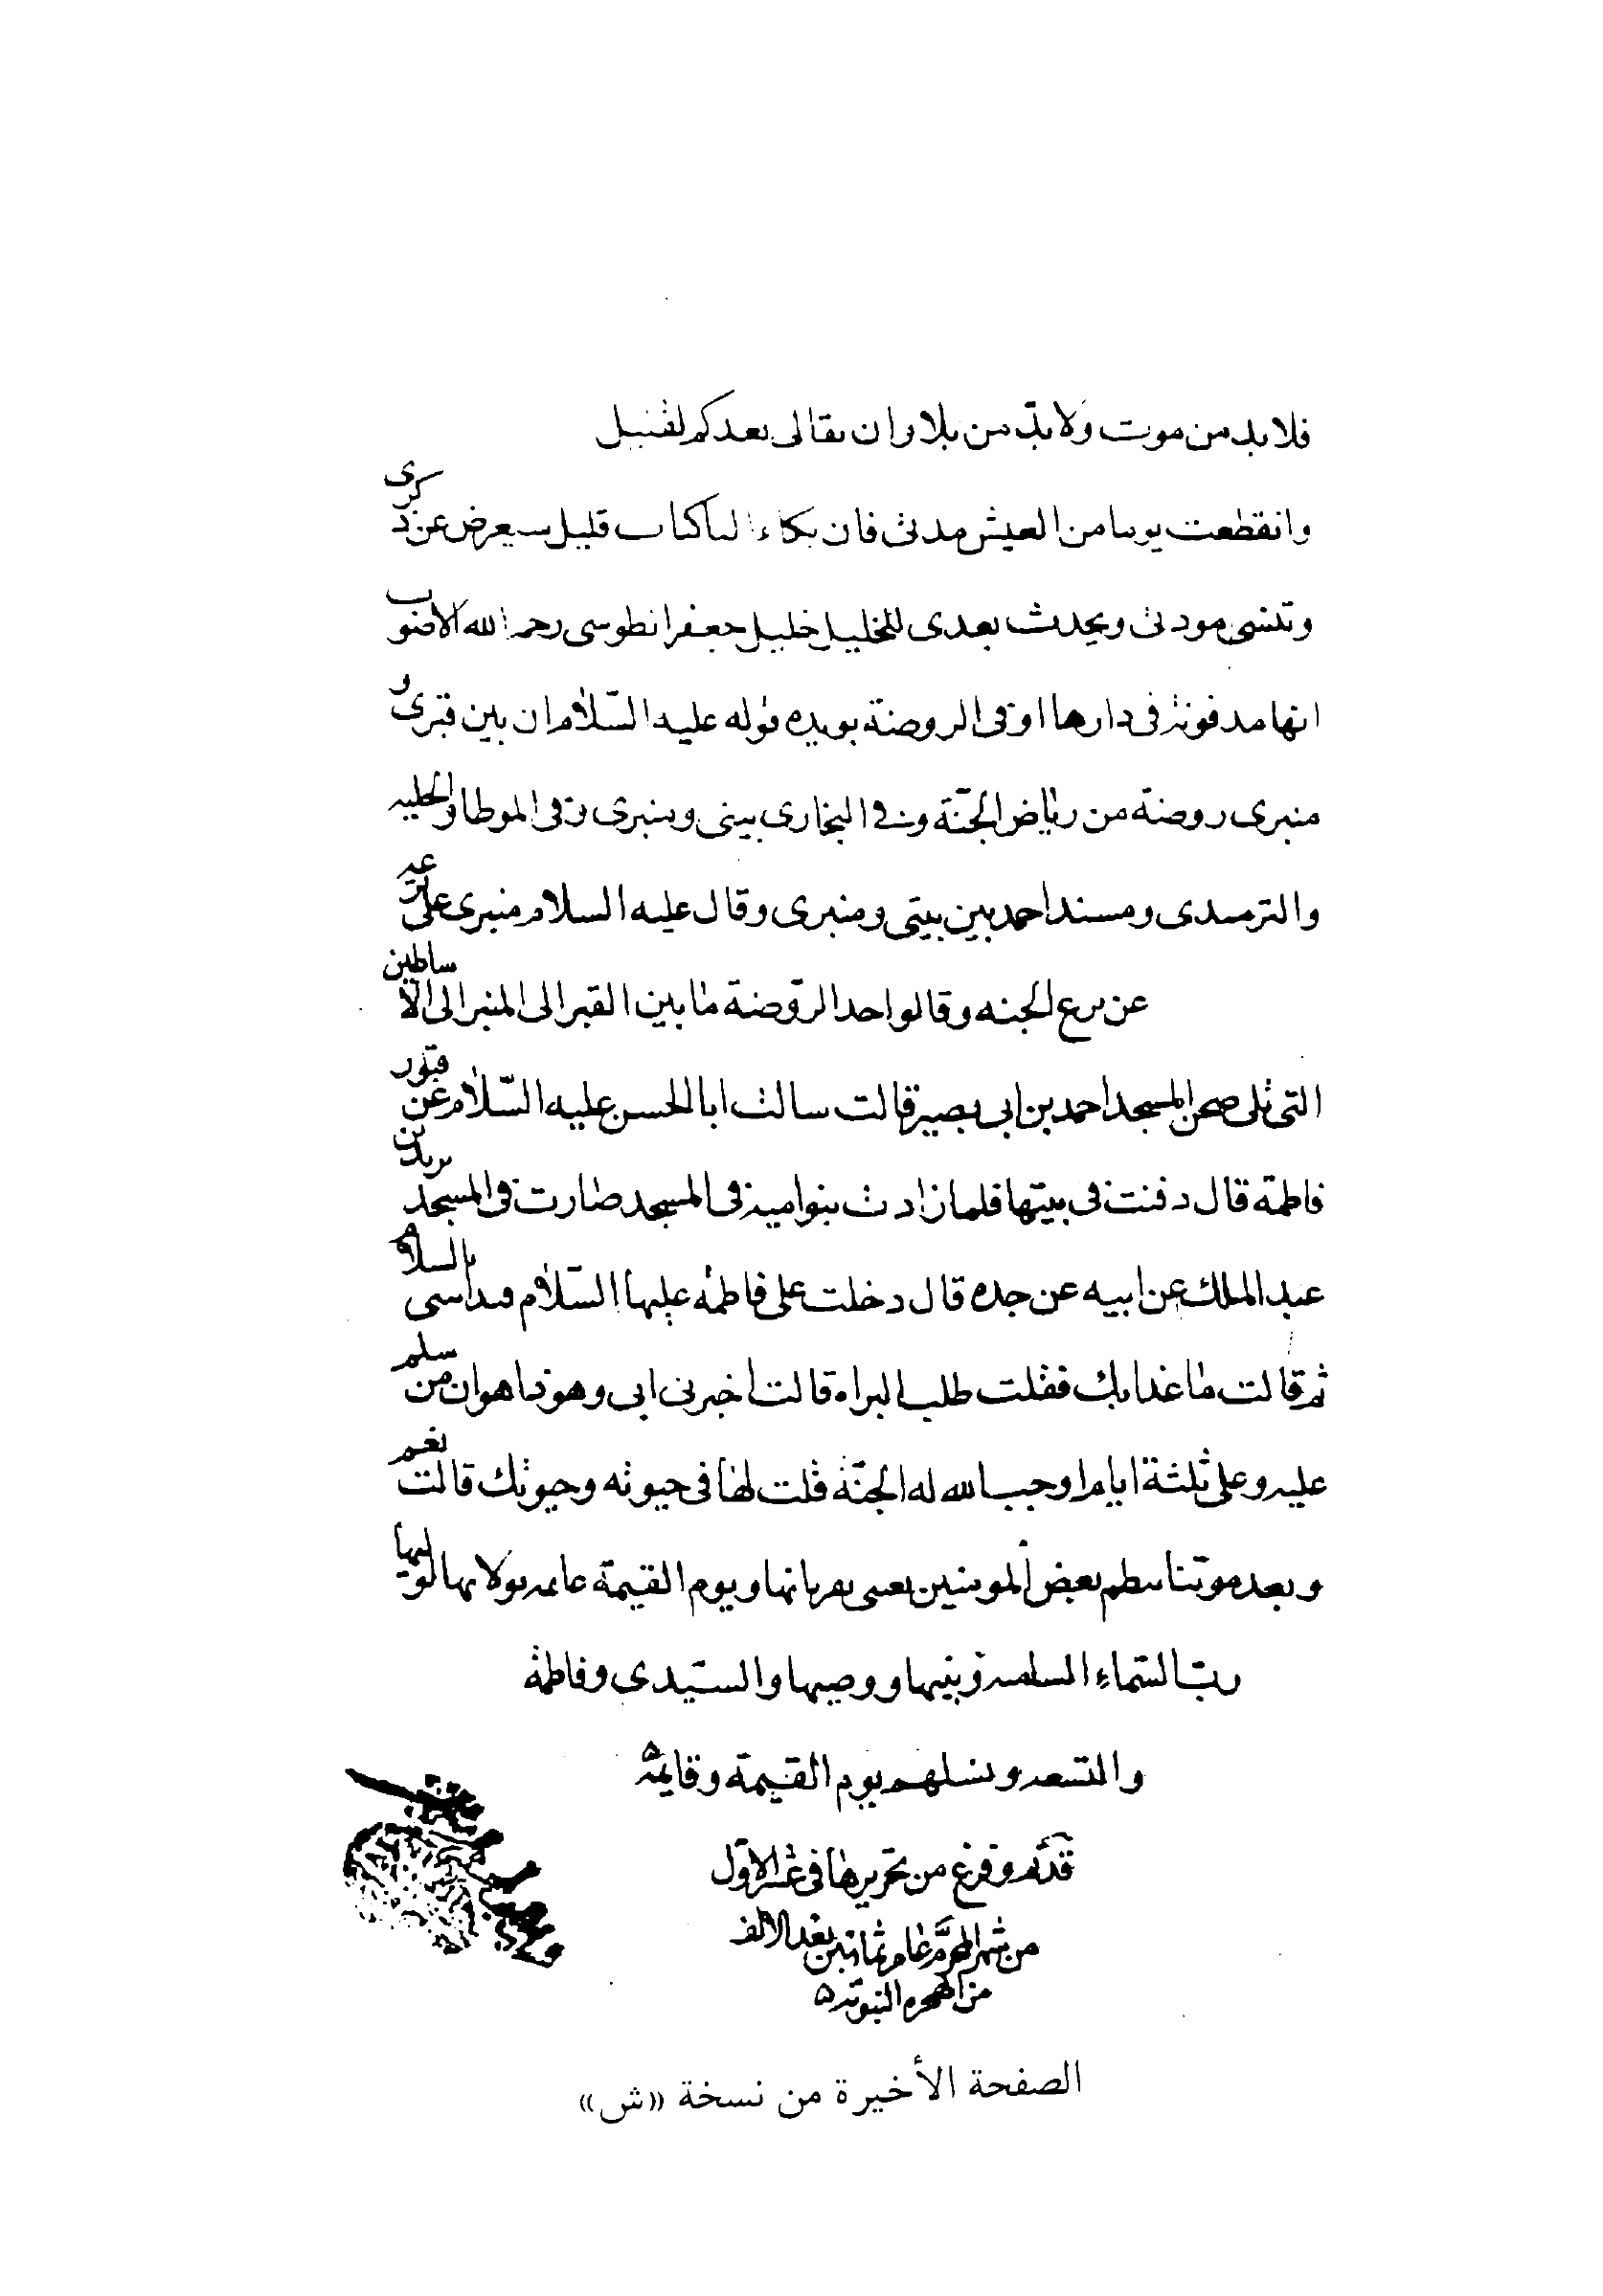 فلابد من موت ولابدّ من بلا وان بقائى بعدكم لقليل
وانقطعت يوما من العيش مدتى فان بكاء الباكيات قليل سيعرض عن ذكرى
وتنسى مودتى ويحدث بعدى للخليل خليل جعفر الطوسى رحمه الله الاصوب
انها مدفونة فى دارها او فى الروضة يويده قوله عليه السّلام ان بين قبرى و
منبرى روضة من رياض الجنّة وفى البخارى بيتى ومنبرى وفى الموطا والحليه
والترمدى ومسند احمد بين بيتى ومنبرى وقال عليه السلام منبرى على ترعه
عن ترع الجنه وقالوا حد الروّضة ما بين القبر الى المنبر الى الاساطين
التى تلى صحن المسجد احمد بن ابى بصير قالت سالت ابا الحسن عليه السّلام عن قبور
فاطمة قال دفنت فى بيتها فلما زادت بنو اميه فى المسجد صارت فى المسجد يزيد بن
عبد الملك عن ابيه عن جده قال دخلت على فاطمة عليها السّلام فبداتنى بالسلام
ثم قالت ما غدا بك فقلت طلب البراه قالت اخبرنى ابى وهو ذا هو ان من سلم
عليه وعلى ثلثة ايام اوجب الله له الجنّة قلت لها فى حيوته وحيوتك قالت نعم
وبعد موتنا بعض المومنين ويوم القيمة
ربّ السّماء وبنيها ووصيها والسيّدى وفاطمة
يوم القيمة وقايمة
وفرغ من تحريرها فى عشر الاوّل
من شهر المحرّم عام ثمانين بعد الالف
من الهجره النبويّه
الصفحة الأخيرة من نسخة «ش»